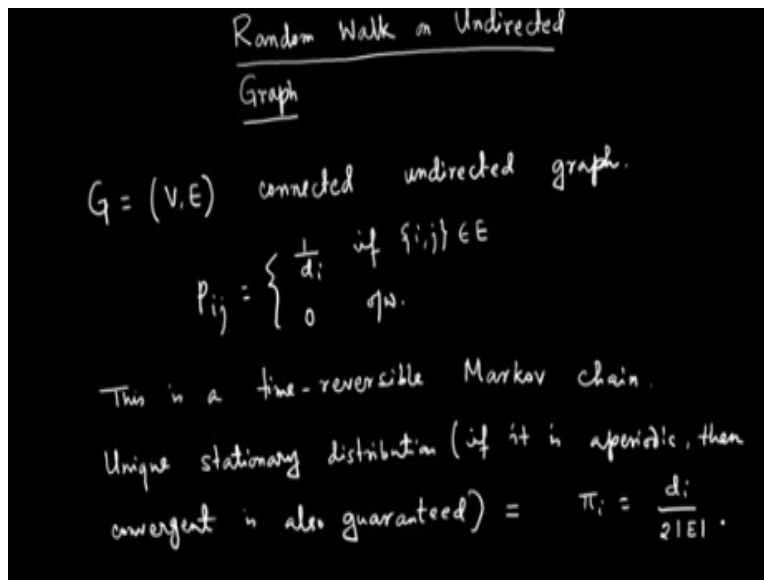 Random Walk on Undirected
Graph
G = (V, E) connected undirected graph.
P_{ij} = { 1/d_i if {i,j} ∈ E
0 o/w.
This is a time-reversible Markov chain.
Unique stationary distribution (if it is aperiodic, then
convergent is also guaranteed) = π_i = d_i / 2|E| .